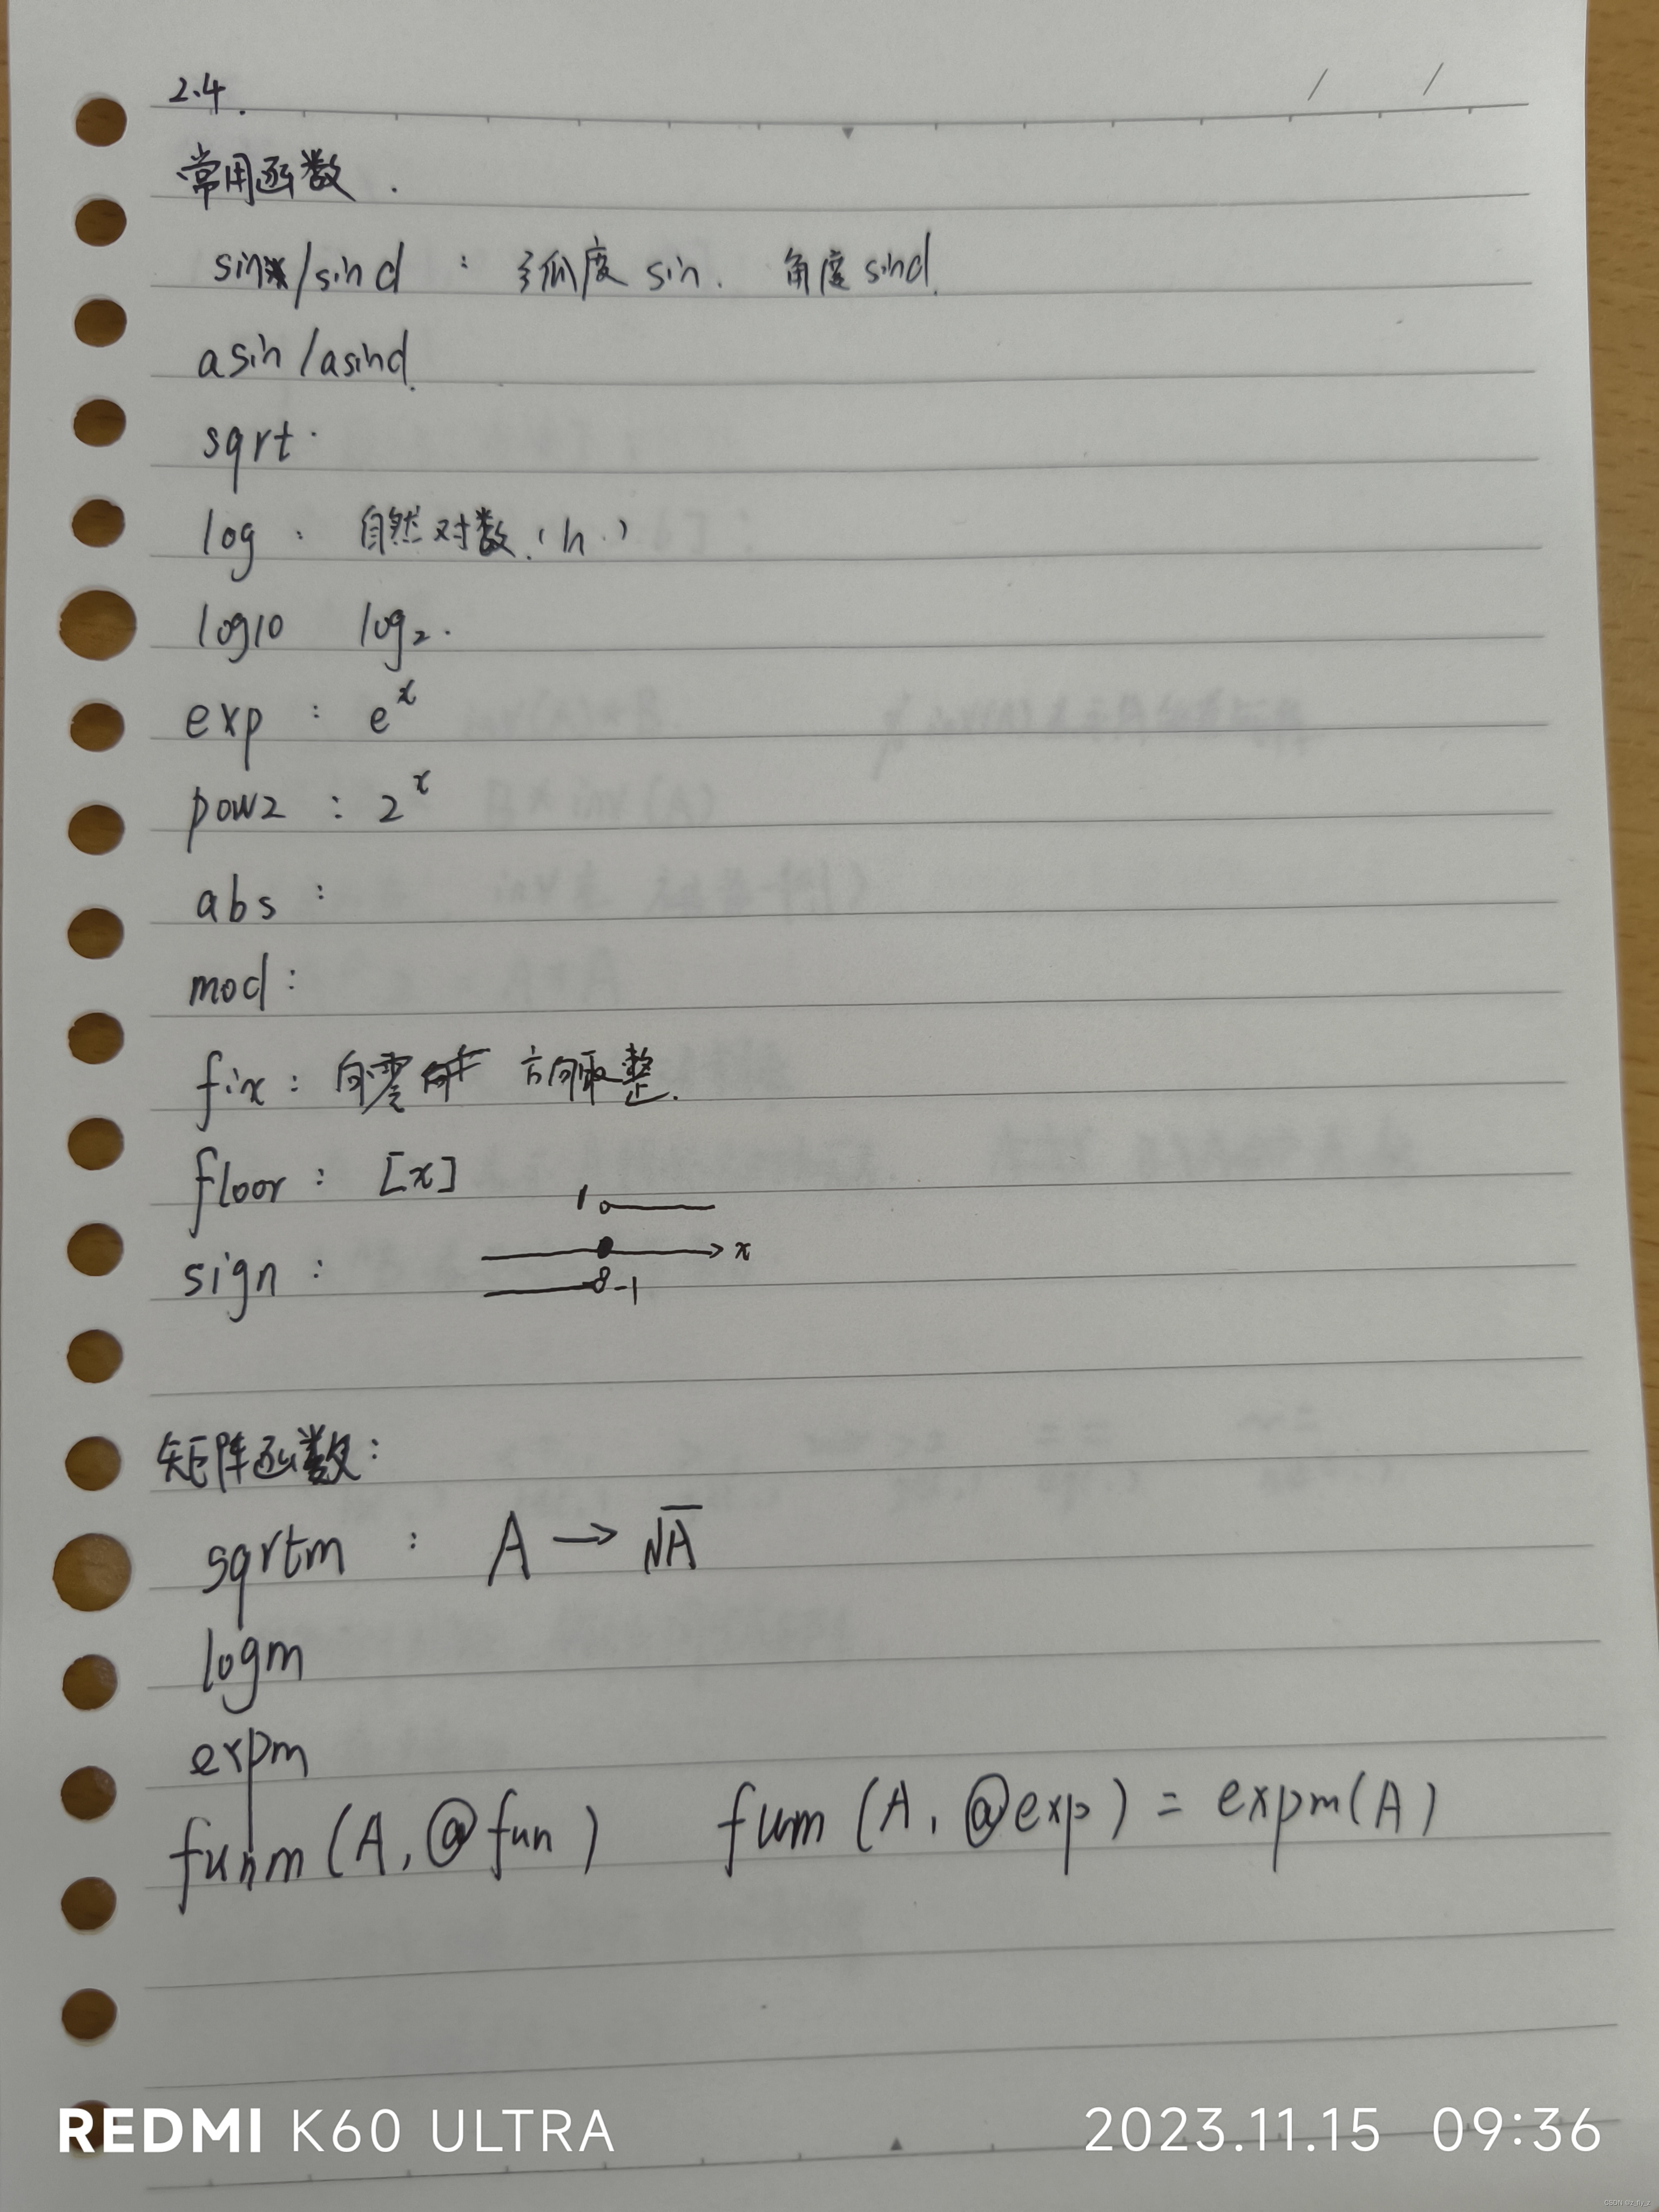 2.4.
常用函数.
sin/sind : 弧度 sin. 角度 sind.
asin/asind.
sqrt.
log : 自然对数.(ln.)
log10 log₂.
exp : eˣ
pow2 : 2ˣ
abs :
mod :
fix : 向零 方向取整.
floor : [x]
1
x
sign :
-1
矩阵函数:
sqrtm : A → √A
logm
expm
funm (A, @fun) funm (A, @exp) = expm(A)
REDMI K60 ULTRA 2023.11.15 09:36